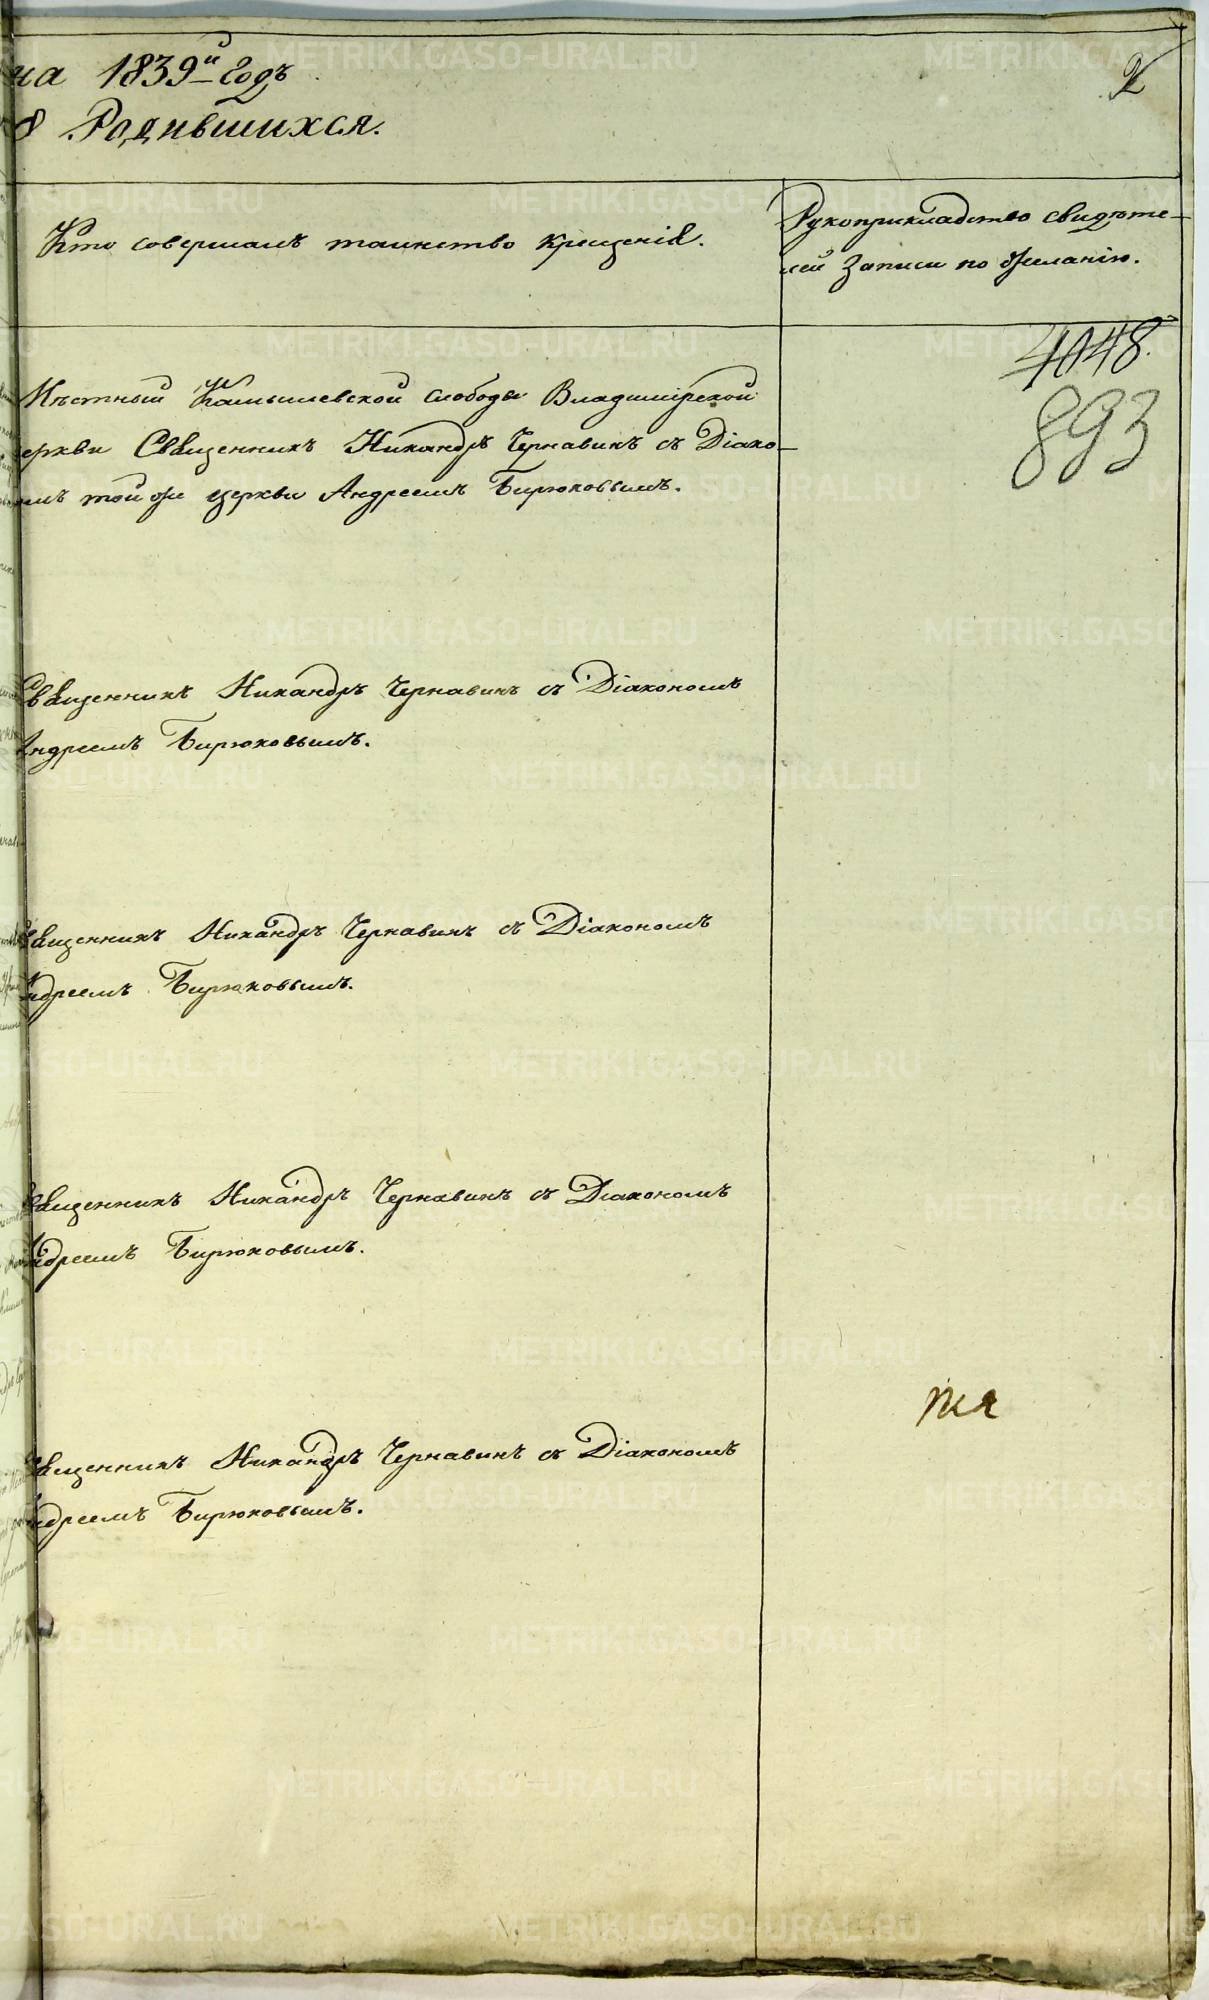 на 1839й годъ
2
о Родившихся.
Кто совершалъ таинство крещенія.
Рукоприкладство свидѣте-
лей записи по желанію.
4048.
893
Мѣстный Камышевской слободы Владимірской
еркви Священникъ Никандръ Чернавинъ съ Діако-
омъ той же церкви Андреемъ Бирюковымъ.
Священникъ Никандръ Чернавинъ съ Діакономъ
Андреемъ Бирюковымъ.
вященникъ Никандръ Чернавинъ съ Діакономъ
ндреемъ Бирюковымъ.
вященникъ Никандръ Чернавинъ съ Діакономъ
ндреемъ Бирюковымъ.
вященникъ Никандръ Чернавинъ съ Діакономъ
ндреемъ Бирюковымъ.
METRIKI.GASO-URAL.RU